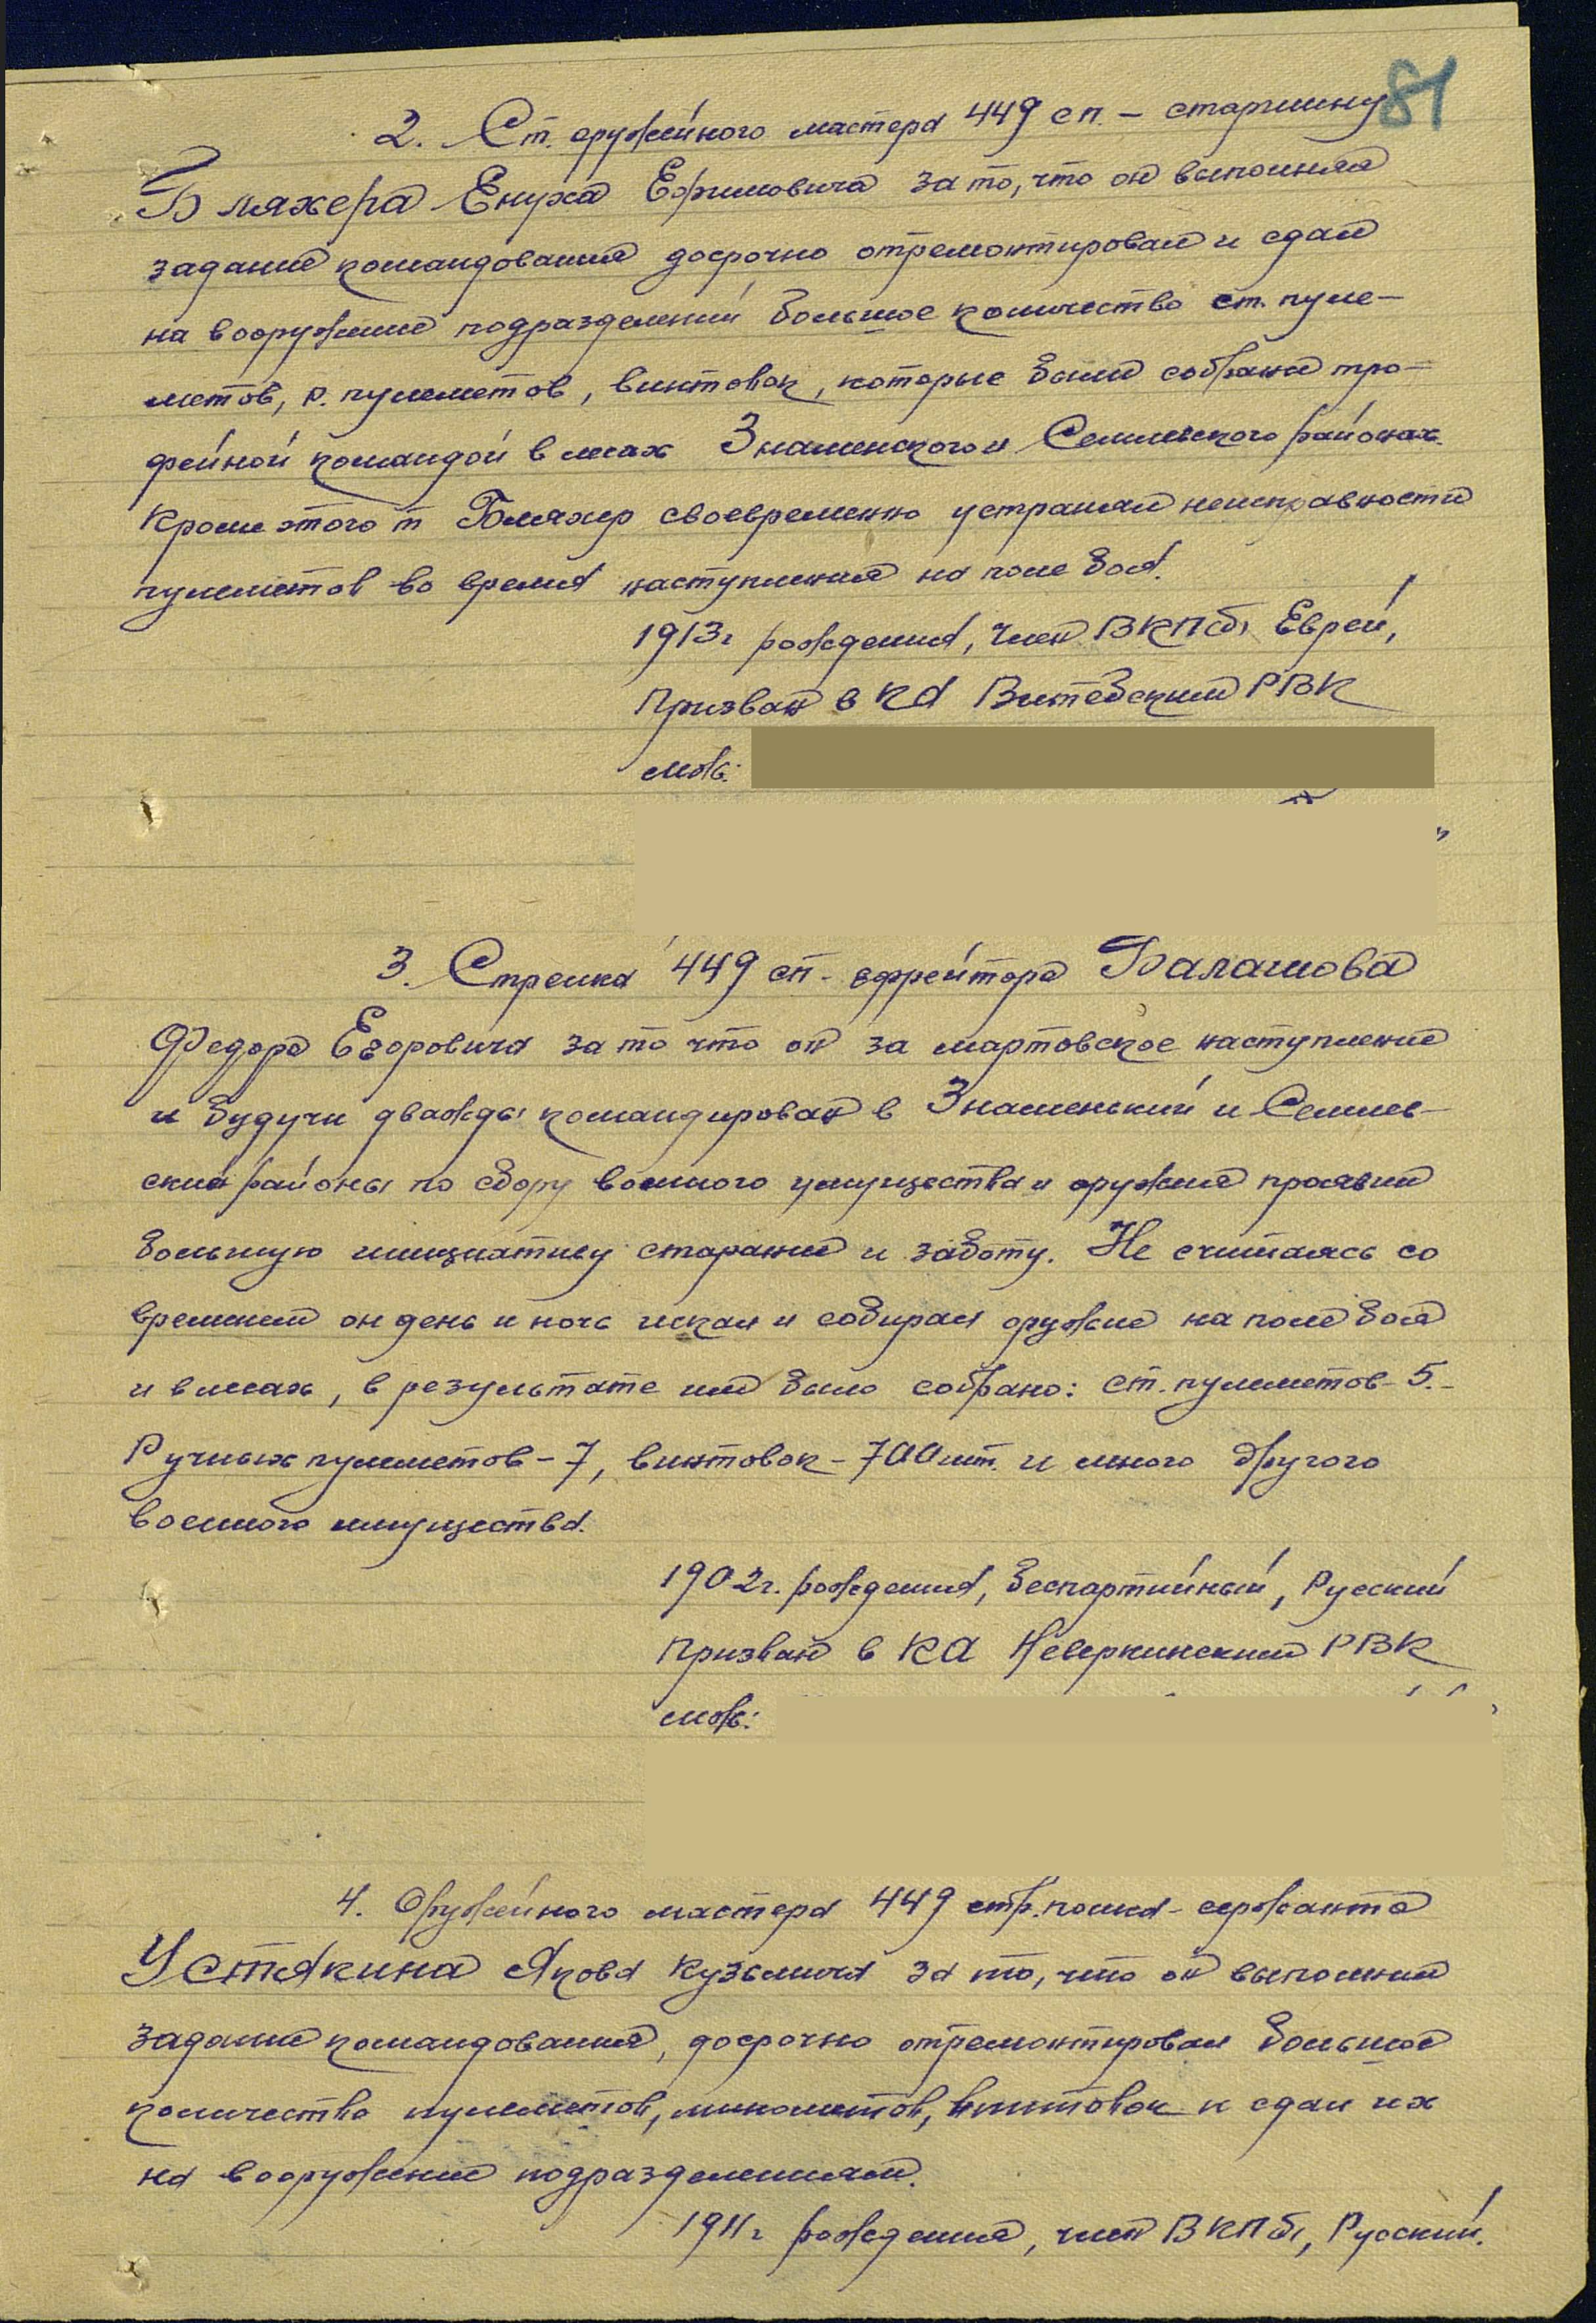 81
2. Ст. оружейного мастера 449 сп. – старшину
Бляхера Енуха Ефимовича за то, что он выполняя
задание командования досрочно отремонтировал и сдал
на вооружение подразделений большое количество ст. пуле-
метов, р. пулеметов, винтовок, которые были собраны тро-
фейной командой в лесах Знаменского и Семлевского районах.
Кроме этого т Бляхер своевременно устранял неисправности
пулеметов во время наступления на поле боя.
1913г рождения, член ВКП(б), Еврей,
Призван в КА Витебским РВК
мож:
3. Стрелка 449 сп – ефрейтора Балашова
Федора Егоровича за то что он за мартовское наступление
и будучи дважды командирован в Знаменьский и Семлев-
ский районы по сбору военного имущества и оружия проявил
большую инициативу старание и заботу. Не считаясь со
временем он день и ночь искал и собирал оружие на поле боя
и в лесах, в результате им было собрано: ст. пулеметов – 5. –
Ручных пулеметов – 7, винтовок – 700 шт. и много другого
военного имущества.
1902г. рождения, беспартийный, Русский
Призван в КА Неверкинским РВК
мож:
4. Оружейного мастера 449 стр. полка – сержанта
Устякина Якова Кузьмича за то, что он выполнил
задание командования, досрочно отремонтировал большое
количество пулеметов, минометов, винтовок и сдал их
на вооружение подразделениям.
1911г рождения, член ВКПб, Русский.